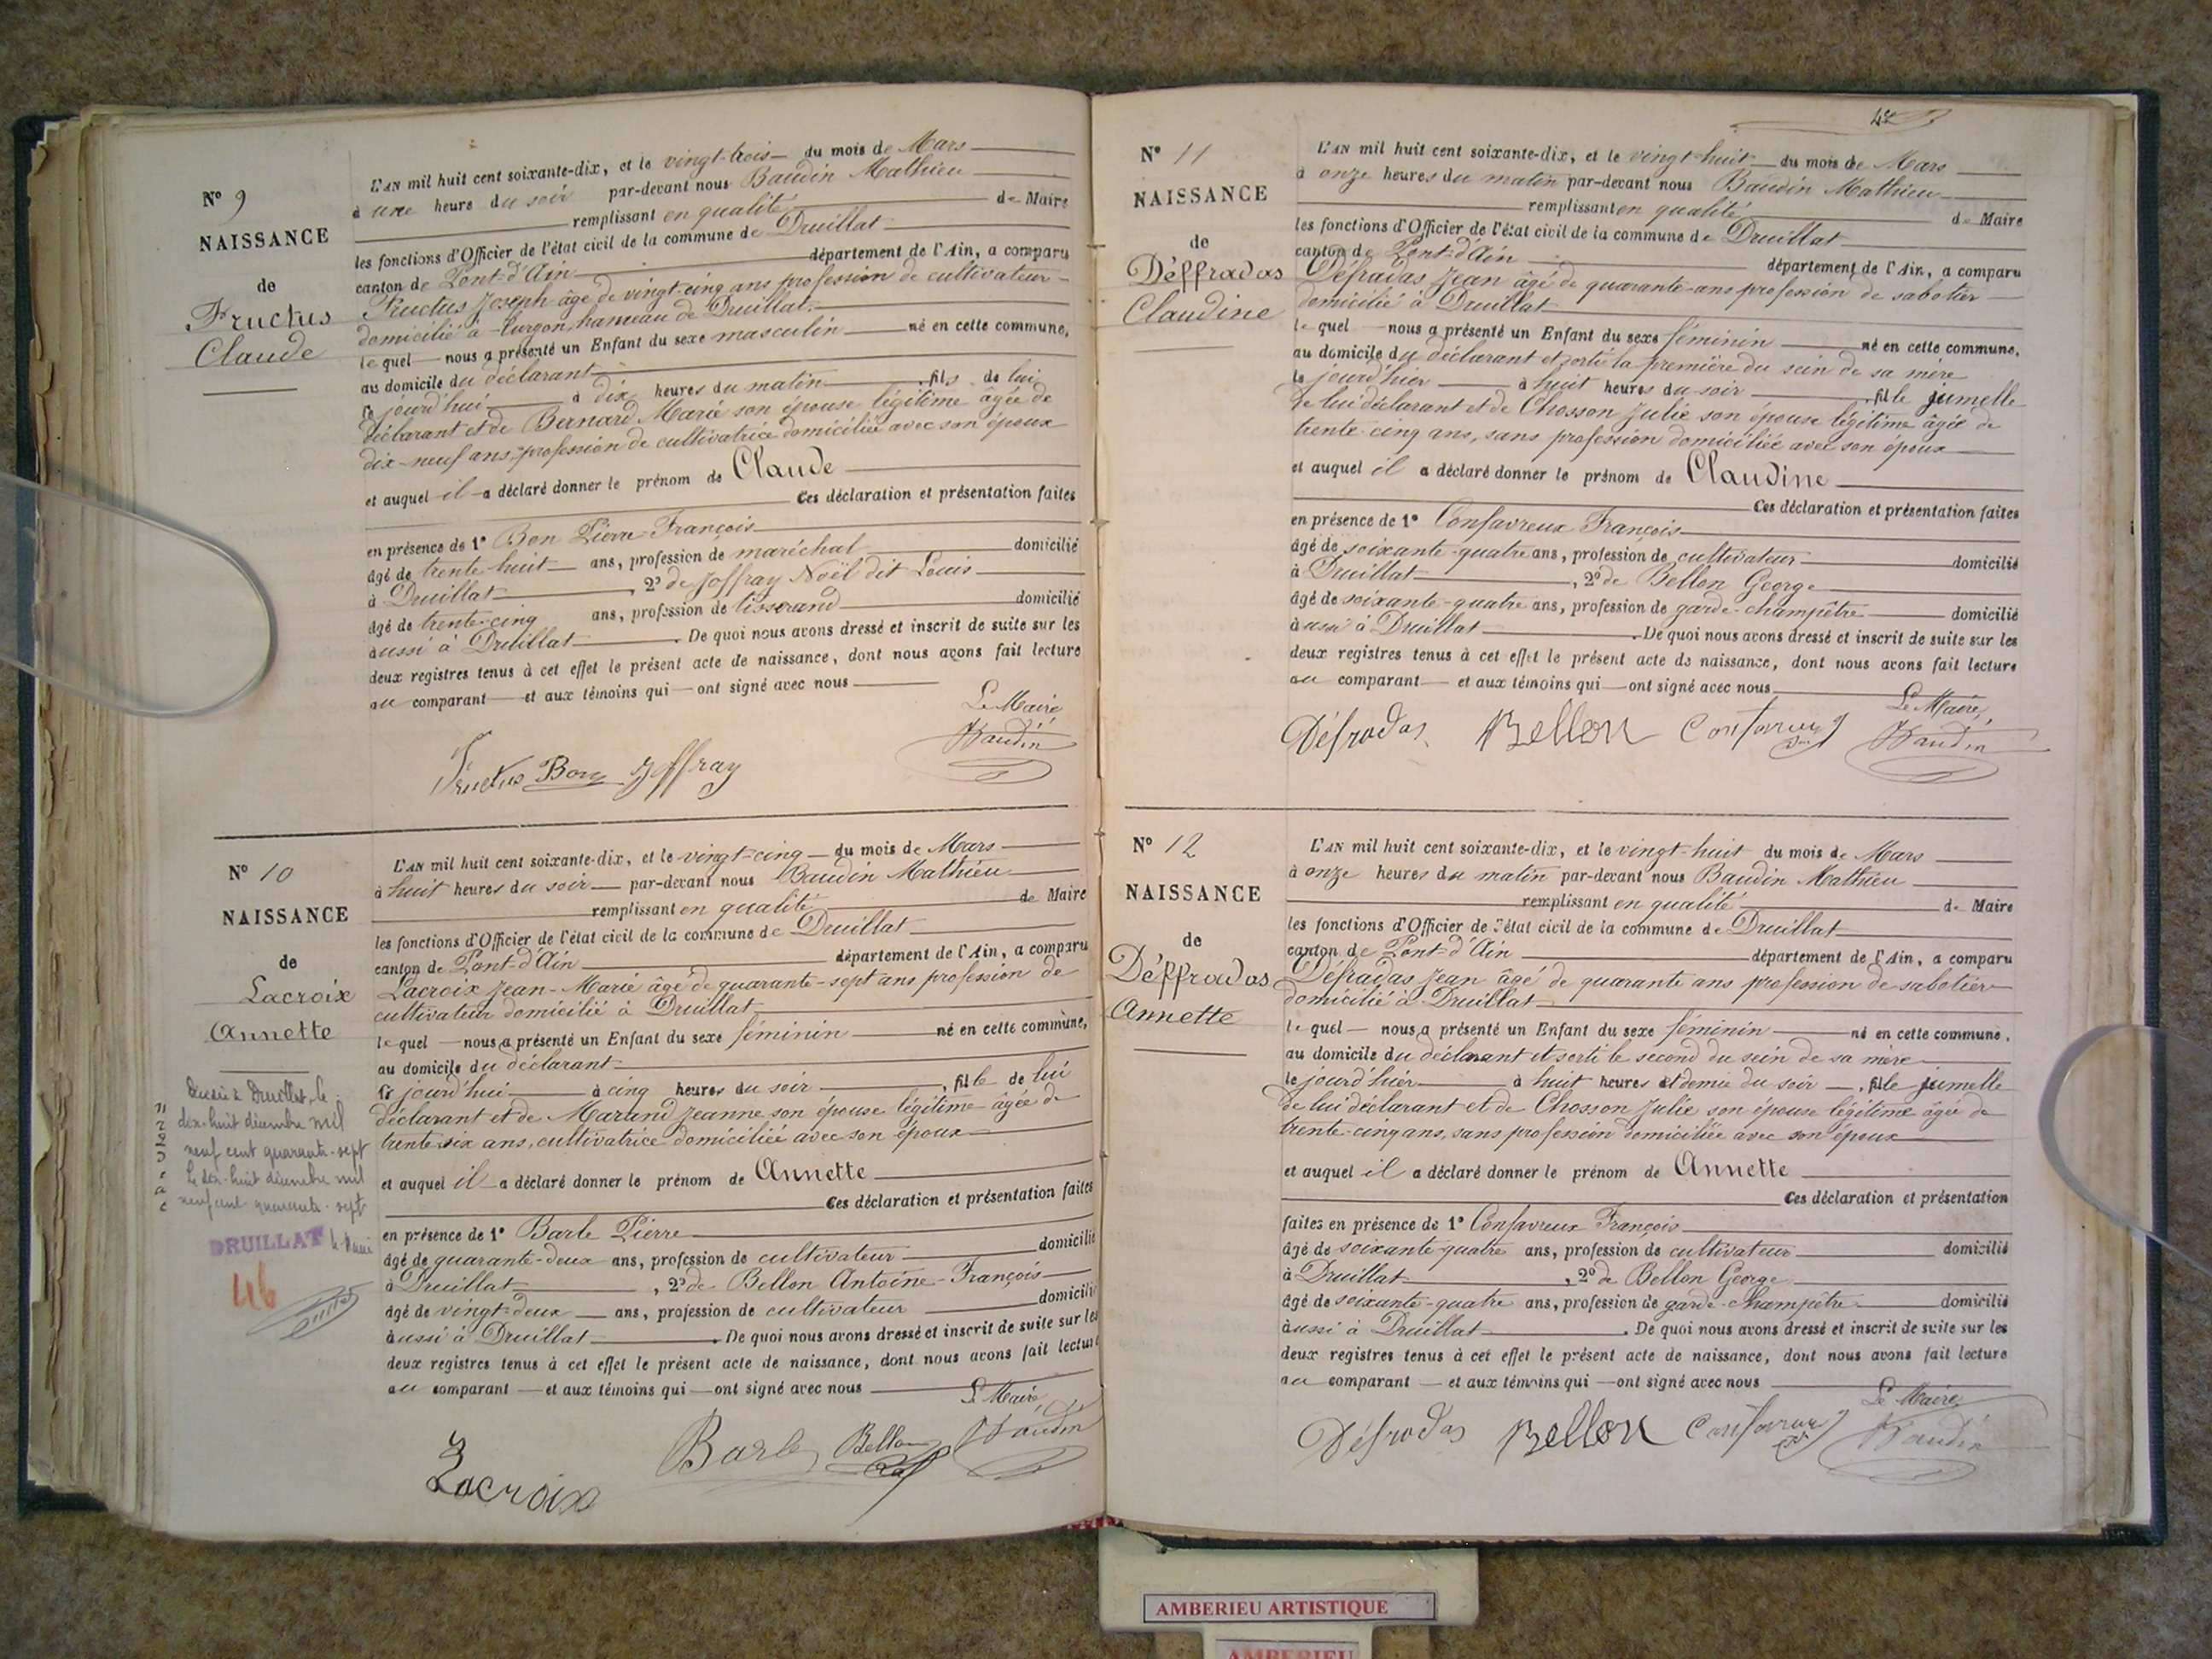 N° 9
NAISSANCE
de
Fructus
Claude
L'AN mil huit cent soixante-dix, et le vingt-trois du mois de Mars
à une heure du soir par-devant nous Baudin Mathieu
remplissant en qualité de Maire
les fonctions d'Officier de l'état civil de la commune de Druillat
canton de Pont-d'Ain département de l'Ain, a comparu
Fructus Joseph âgé de vingt-cinq ans profession de cultivateur
domicilié à Turgon hameau de Druillat.
lequel nous a présenté un Enfant du sexe masculin né en cette commune,
au domicile du déclarant
ce jourd'hui à dix heures du matin, fils de lui
déclarant et de Bernard Marie son épouse légitime âgée de
dix-neuf ans, profession de cultivatrice domiciliée avec son époux
et auquel il a déclaré donner le prénom de Claude
Ces déclaration et présentation faites
en présence de 1° Bon Pierre-François
âgé de trente-huit ans, profession de maréchal domicilié
à Druillat, 2° de Joffray Noël dit Louis
âgé de trente-cinq ans, profession de tisserand domicilié
aussi à Druillat. De quoi nous avons dressé et inscrit de suite sur les
deux registres tenus à cet effet le présent acte de naissance, dont nous avons fait lecture
au comparant et aux témoins qui ont signé avec nous
Le Maire
Fructus Bon Joffray Baudin
N° 10
NAISSANCE
de
Lacroix
Annette
Décédée à Druillat, le
dix-huit décembre mil
neuf cent quarante-sept
Le dix-huit décembre mil
neuf cent quarante-sept
DRUILLAT le Maire
46
L'AN mil huit cent soixante-dix, et le vingt-cinq du mois de Mars
à huit heures du soir par-devant nous Baudin Mathieu
remplissant en qualité de Maire
les fonctions d'Officier de l'état civil de la commune de Druillat
canton de Pont-d'Ain département de l'Ain, a comparu
Lacroix Jean-Marie âgé de quarante-sept ans profession de
cultivateur domicilié à Druillat
lequel nous a présenté un Enfant du sexe féminin né en cette commune,
au domicile du déclarant
ce jourd'hui à cinq heures du soir, fille de lui
déclarant et de Marand Jeanne son épouse légitime âgée de
trente-six ans, cultivatrice domiciliée avec son époux
et auquel il a déclaré donner le prénom de Annette
Ces déclaration et présentation faites
en présence de 1° Barle Pierre
âgé de quarante-deux ans, profession de cultivateur domicilié
à Druillat, 2° de Bellon Antoine-François
âgé de vingt-deux ans, profession de cultivateur domicilié
aussi à Druillat. De quoi nous avons dressé et inscrit de suite sur les
deux registres tenus à cet effet le présent acte de naissance, dont nous avons fait lecture
au comparant et aux témoins qui ont signé avec nous
Le Maire,
Lacroix Barle Bellon Baudin
N° 11
NAISSANCE
de
Déffradas
Claudine
L'AN mil huit cent soixante-dix, et le vingt-huit du mois de Mars
à onze heures du matin par-devant nous Baudin Mathieu
remplissant en qualité de Maire
les fonctions d'Officier de l'état civil de la commune de Druillat
canton de Pont-d'Ain département de l'Ain, a comparu
Défradas Jean âgé de quarante ans profession de sabotier
domicilié à Druillat
lequel nous a présenté un Enfant du sexe féminin né en cette commune,
au domicile du déclarant et sortie la première du sein de sa mère
le jourd'hier à huit heures du soir, fille jumelle
de lui déclarant et de Chosson Julie son épouse légitime âgée de
trente-cinq ans, sans profession domiciliée avec son époux
et auquel il a déclaré donner le prénom de Claudine
Ces déclaration et présentation faites
en présence de 1° Confavreux François
âgé de soixante-quatre ans, profession de cultivateur domicilié
à Druillat, 2° de Bellon George
âgé de soixante-quatre ans, profession de garde-champêtre domicilié
aussi à Druillat. De quoi nous avons dressé et inscrit de suite sur les
deux registres tenus à cet effet le présent acte de naissance, dont nous avons fait lecture
au comparant et aux témoins qui ont signé avec nous
Le Maire,
Défradas Bellon Confavreux Baudin
N° 12
NAISSANCE
de
Déffradas
Annette
L'AN mil huit cent soixante-dix, et le vingt-huit du mois de Mars
à onze heures du matin par-devant nous Baudin Mathieu
remplissant en qualité de Maire
les fonctions d'Officier de l'état civil de la commune de Druillat
canton de Pont-d'Ain département de l'Ain, a comparu
Défradas Jean âgé de quarante ans profession de sabotier
domicilié à Druillat
lequel nous a présenté un Enfant du sexe féminin né en cette commune,
au domicile du déclarant et sorti le second du sein de sa mère
le jourd'hier à huit heures et demie du soir, fille jumelle
de lui déclarant et de Chosson Julie son épouse légitime âgée de
trente-cinq ans, sans profession domiciliée avec son époux
et auquel il a déclaré donner le prénom de Annette
Ces déclaration et présentation
faites en présence de 1° Confavreux François
âgé de soixante-quatre ans, profession de cultivateur domicilié
à Druillat, 2° de Bellon George
âgé de soixante-quatre ans, profession de garde-champêtre domicilié
aussi à Druillat. De quoi nous avons dressé et inscrit de suite sur les
deux registres tenus à cet effet le présent acte de naissance, dont nous avons fait lecture
au comparant et aux témoins qui ont signé avec nous
Le Maire,
Défradas Bellon Confavreux Baudin
AMBERIEU ARTISTIQUE
AMBERIEU